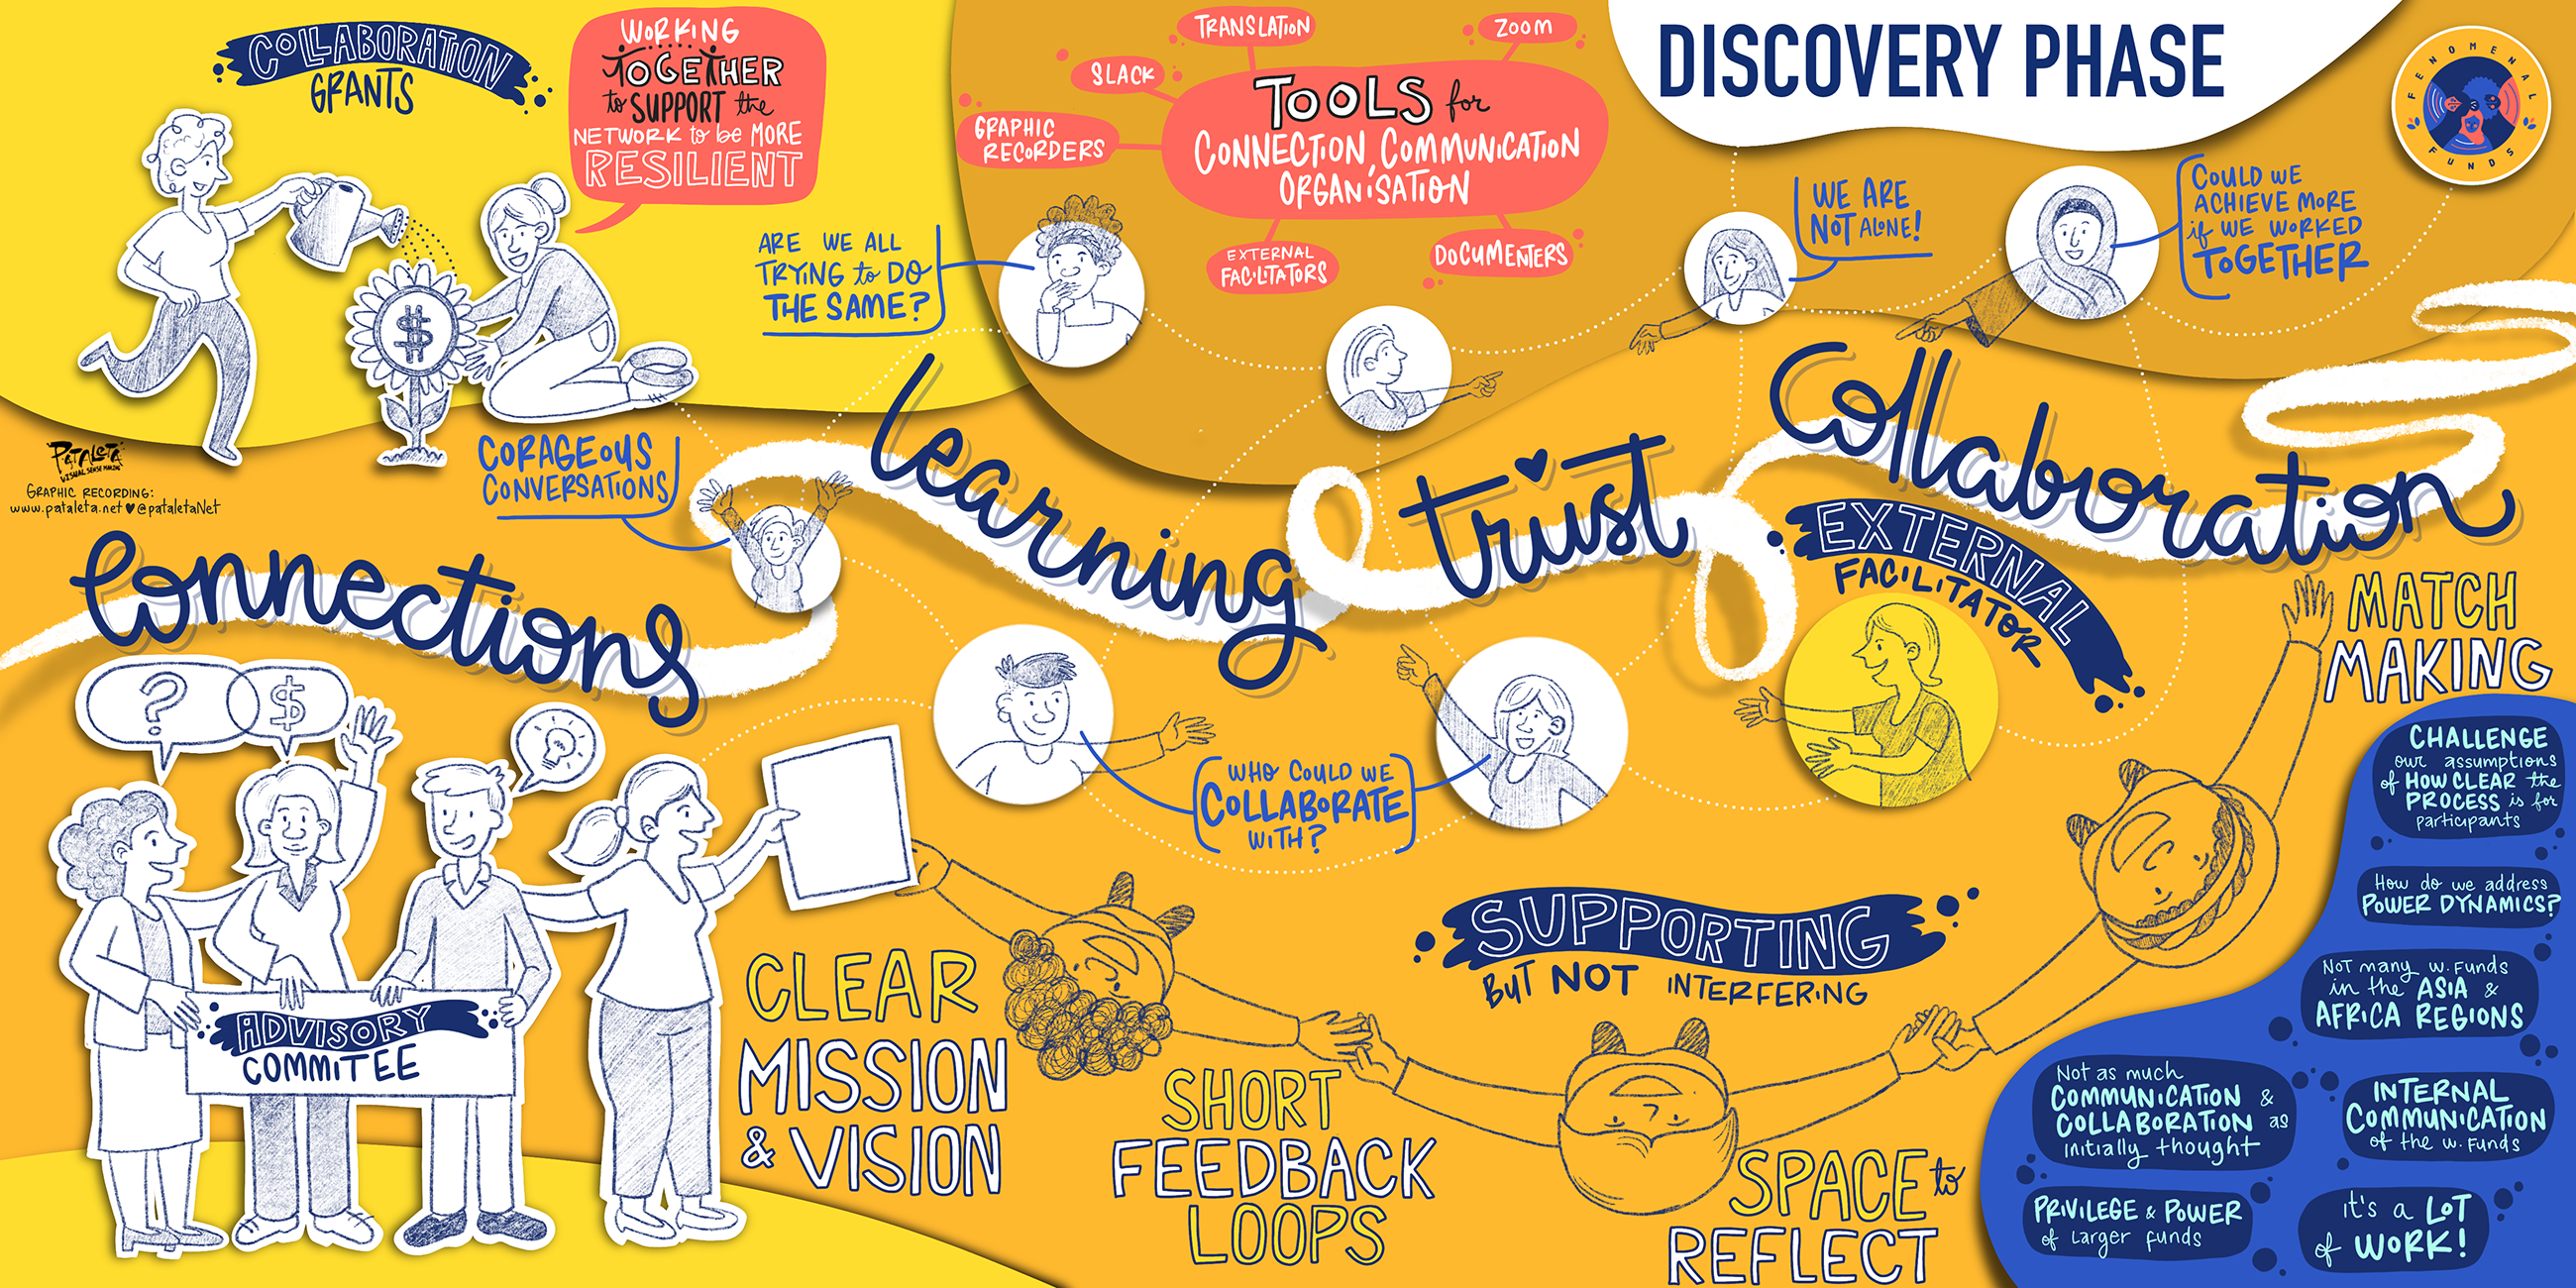 DISCOVERY PHASE
FENOMENAL
FUNDS
COLLABORATION
GRANTS
WORKING
TOGETHER
to SUPPORT the
NETWORK to be MORE
RESILIENT
TRANSLATION
ZOOM
SLACK
GRAPHIC
RECORDERS
TOOLS for
CONNECTION, COMMUNICATION
ORGANISATION
EXTERNAL
FACILITATORS
DOCUMENTERS
ARE WE ALL
TRYING to DO
THE SAME?
WE ARE
NOT ALONE!
COULD WE
ACHIEVE MORE
if WE WORKED
TOGETHER
PATALETA
VISUAL SENSE MAKING
GRAPHIC RECORDING:
www.pataleta.net ♥ @pataletaNet
CORAGEOUS
CONVERSATIONS
Connections
Learning
trust
Collaboration
EXTERNAL
FACILITATOR
MATCH
MAKING
?
$
$
WHO COULD WE
COLLABORATE
WITH?
ADVISORY
COMMITEE
CLEAR
MISSION
& VISION
SHORT
FEEDBACK
LOOPS
SUPPORTING
BUT NOT INTERFERING
SPACE to
REFLECT
CHALLENGE
our assumptions
of HOW CLEAR the
PROCESS is for
participants
How do we address
POWER DYNAMICS?
NOT many w. FUNDS
in the ASIA &
AFRICA REGIONS
Not as much
COMMUNICATION &
COLLABORATION as
initially thought
INTERNAL
COMMUNICATION
of the w. FUNDS
PRIVILEGE & POWER
of Larger funds
it's a LOT
of WORK!